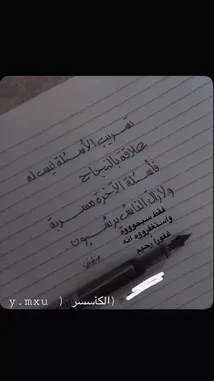 تسريب الأسئلة ليس له
علاقة بالنجاح
فأسئلة الآخرة مسربة
ولازال الناس يرسبون
فقط سبحووو
واستغفرووه انه
غفورا رحيم
y.mxu ) الكأسسر)